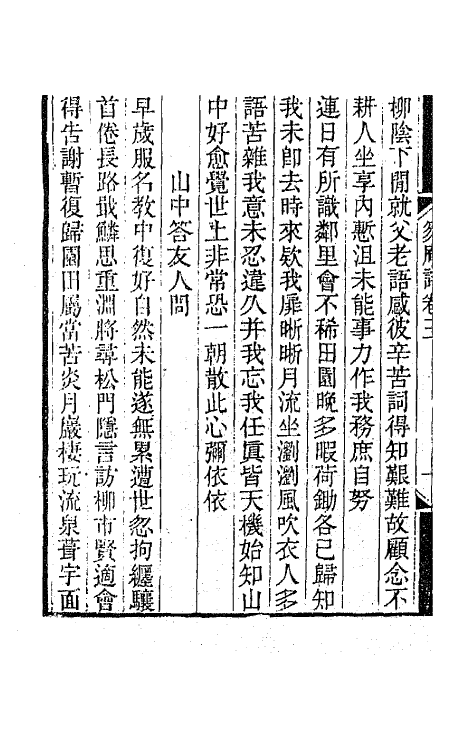 柳陰下閒就父老語感彼辛苦詞得知艱難故顧念不
耕人坐享內慙沮未能事力作我務庶自努
連日有所識鄰里會不稀田園晚多暇荷鋤各已歸知
我未卽去時來欵我扉晰晰月流坐瀏瀏風吹衣人多
語苦雜我意未忍違久幷我忘我任眞皆天機始知山
中好愈覺世上非常恐一朝散此心彌依依
山中答友人問
早歲服名教中復好自然未能遂無累遭世忽拘纒驤
首倦長路戢鱗思重淵將尋松門隱言訪柳市賢適會
得吿謝暫復歸園田屬當苦炎月巖棲玩流泉葺宇面
卷三